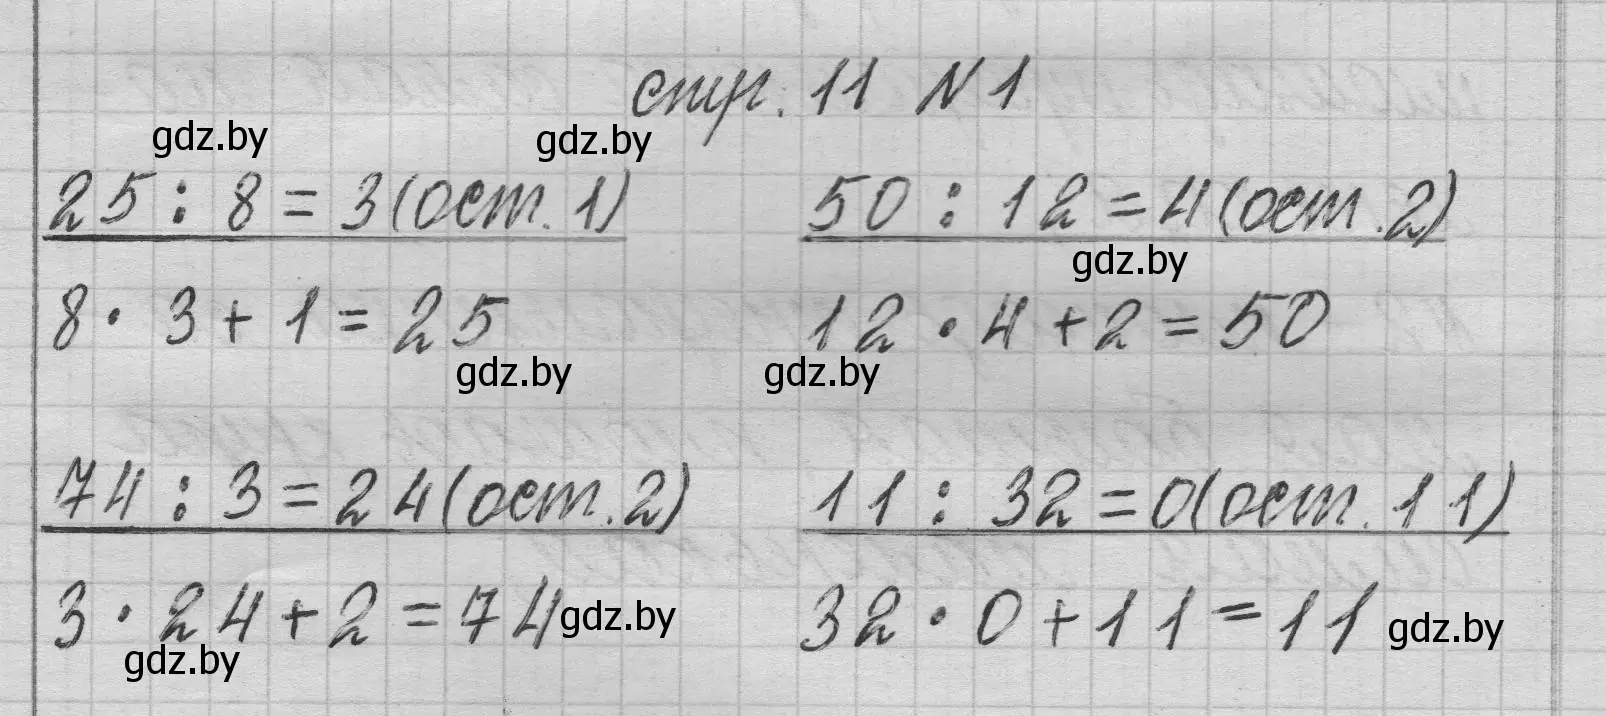 стр. 11 № 1
gdz.by gdz.by
25 : 8 = 3 (ост. 1) 50 : 12 = 4 (ост. 2)
gdz.by
8 · 3 + 1 = 25 12 · 4 + 2 = 50
gdz.by gdz.by
74 : 3 = 24 (ост. 2) 11 : 32 = 0 (ост. 11)
3 · 24 + 2 = 74 gdz.by 32 · 0 + 11 = 11 gdz.by
gdz.by